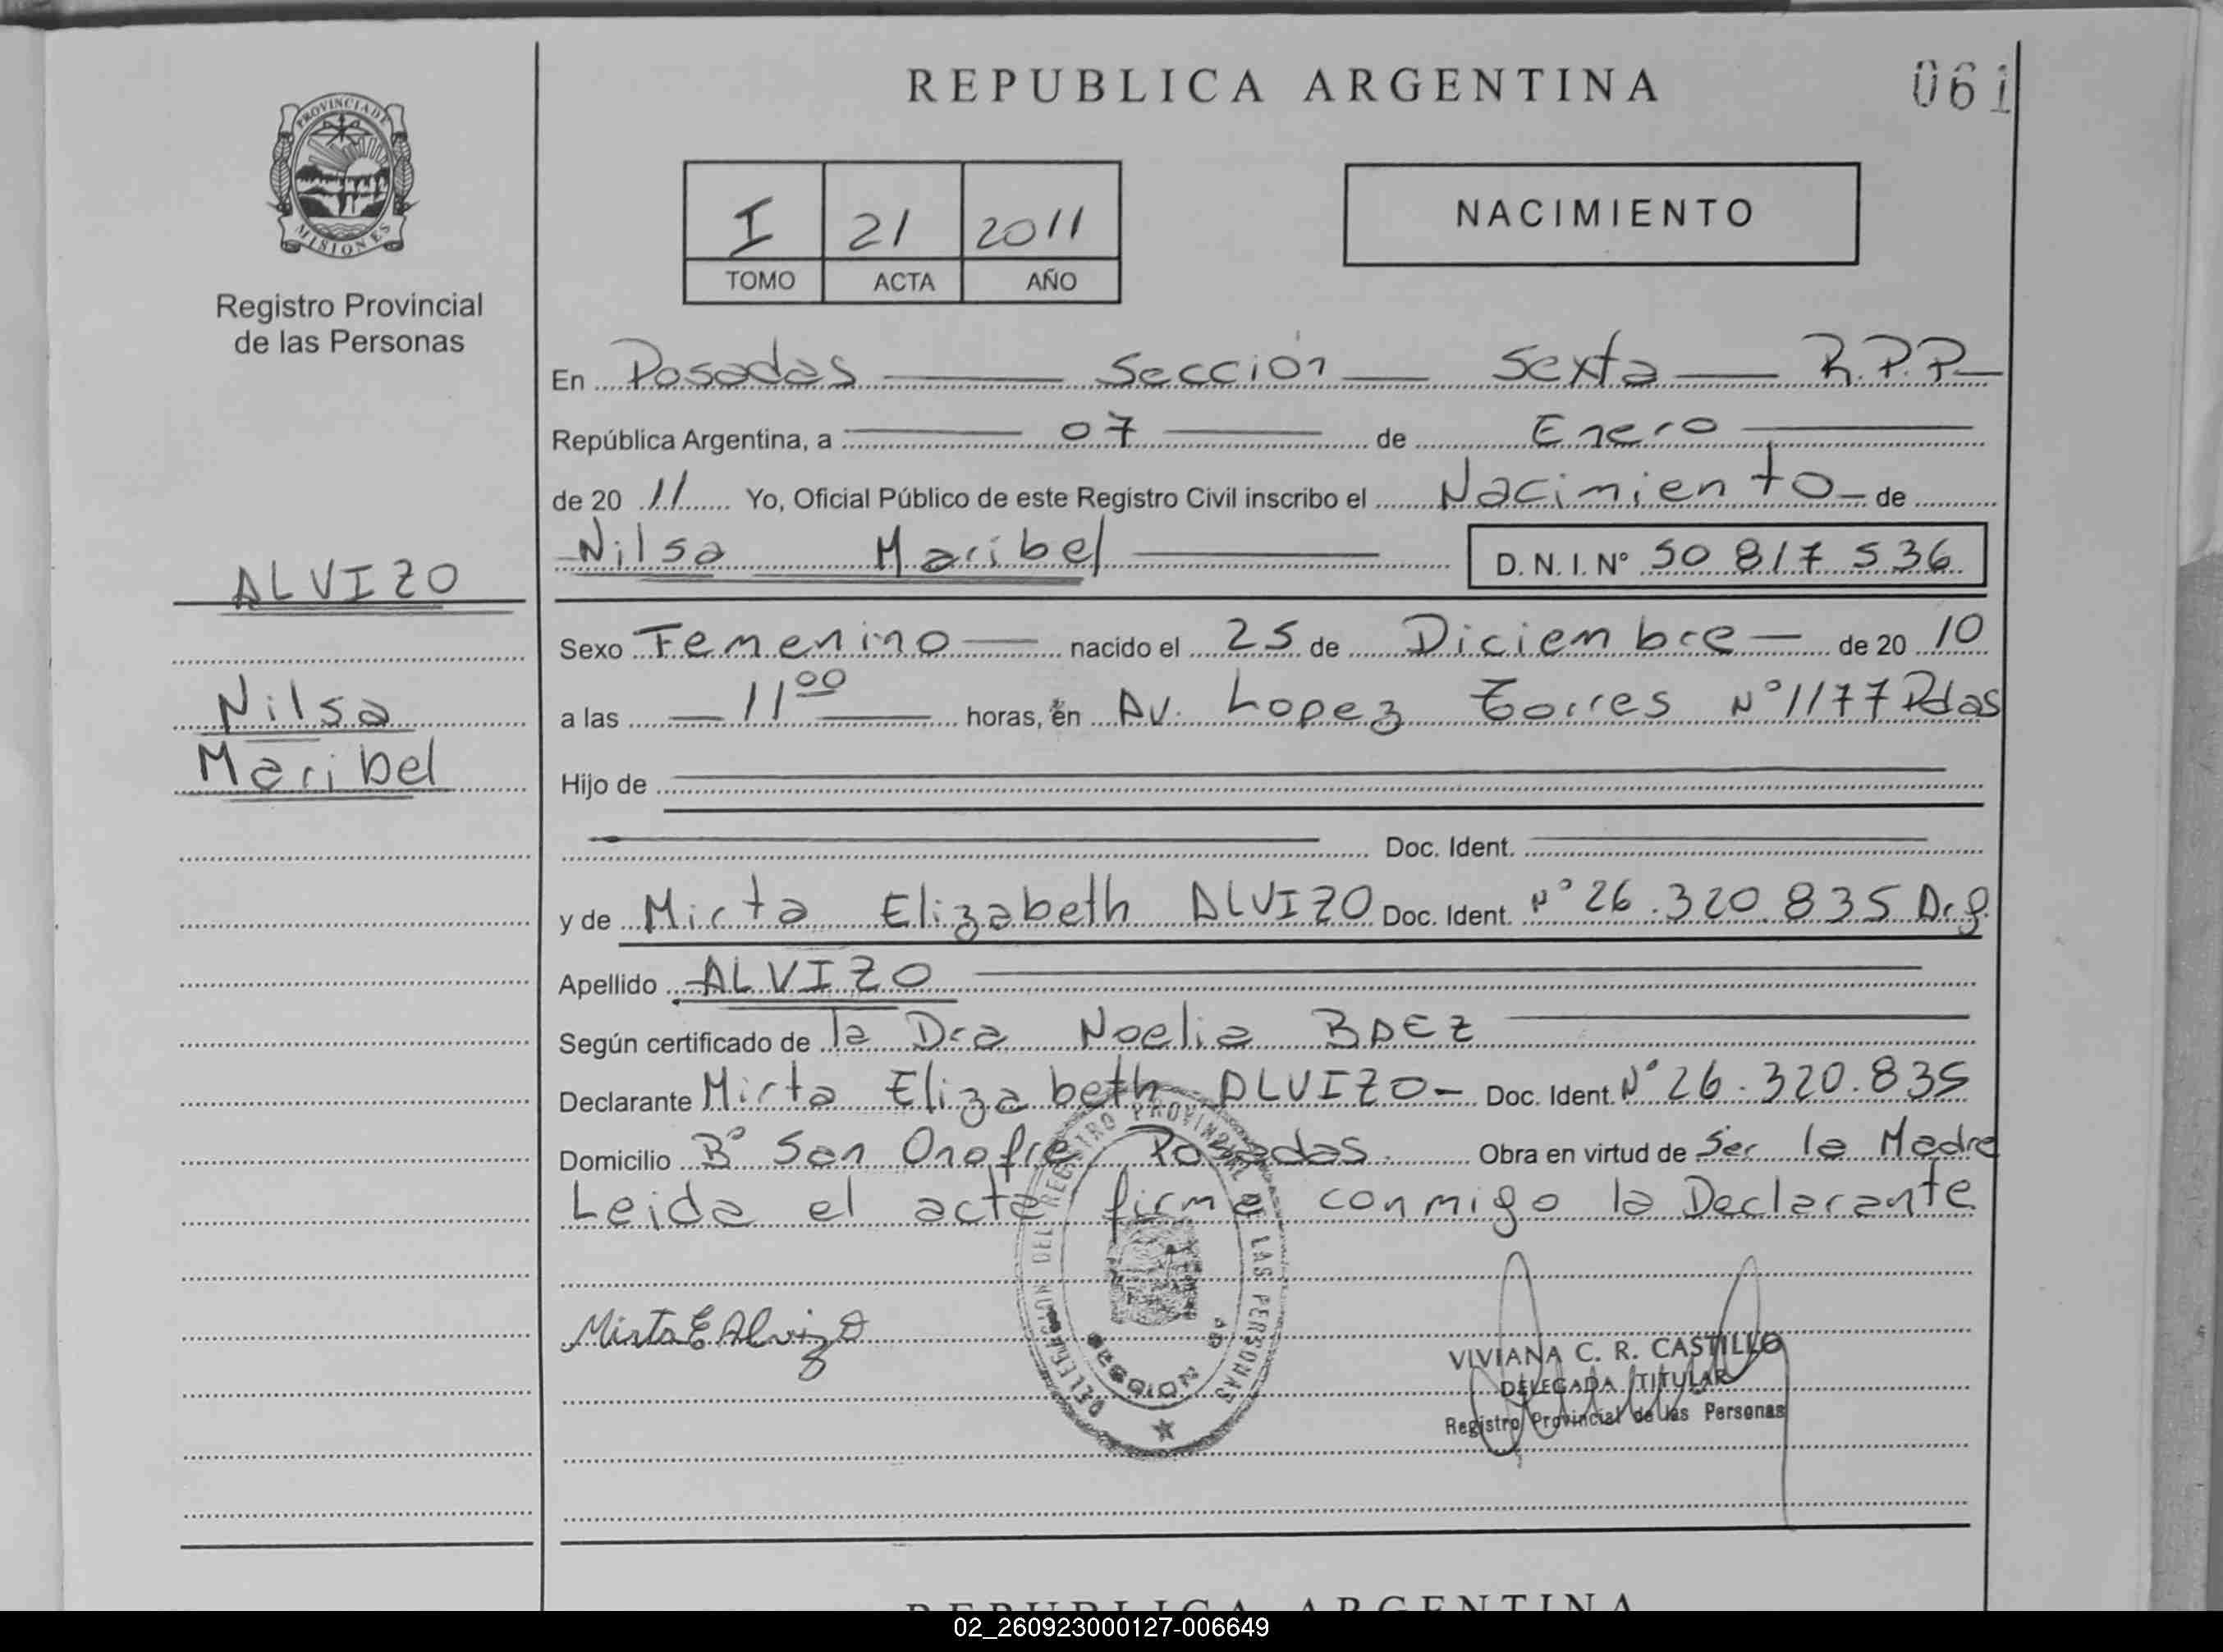 REPUBLICA ARGENTINA
061
PROVINCIA DE
MISIONES
Registro Provincial
de las Personas
I 21 2011
TOMO ACTA AÑO
NACIMIENTO
En Posadas Sección Sexta R.P.P
República Argentina, a 07 de Enero
de 20 11 Yo, Oficial Público de este Registro Civil inscribo el Nacimiento de
Nilsa Maribel D. N. I. N° 50 817 536
ALVIZO
Nilsa
Maribel
Sexo Femenino nacido el 25 de Diciembre de 20 10
a las 11 00 horas, en Av. Lopez Torres N° 1177 Pdas
Hijo de
Doc. Ident.
y de Mirta Elizabeth ALVIZO Doc. Ident. N° 26.320.835 Arg.
Apellido ALVIZO
Según certificado de la Dra Noelia BAEZ
Declarante Mirta Elizabeth ALVIZO - Doc. Ident. N° 26.320.835
Domicilio B° San Onofre Posadas. Obra en virtud de Ser la Madre
Leida el acta firma conmigo la Declarante
Mirta E Alvizo
DELEGACION DEL REGISTRO PROVINCIAL DE LAS PERSONAS
VIVIANA C. R. CASTILLO
DELEGADA TITULAR
Registro Provincial de las Personas
REPUBLICA ARGENTINA
02_260923000127-006649